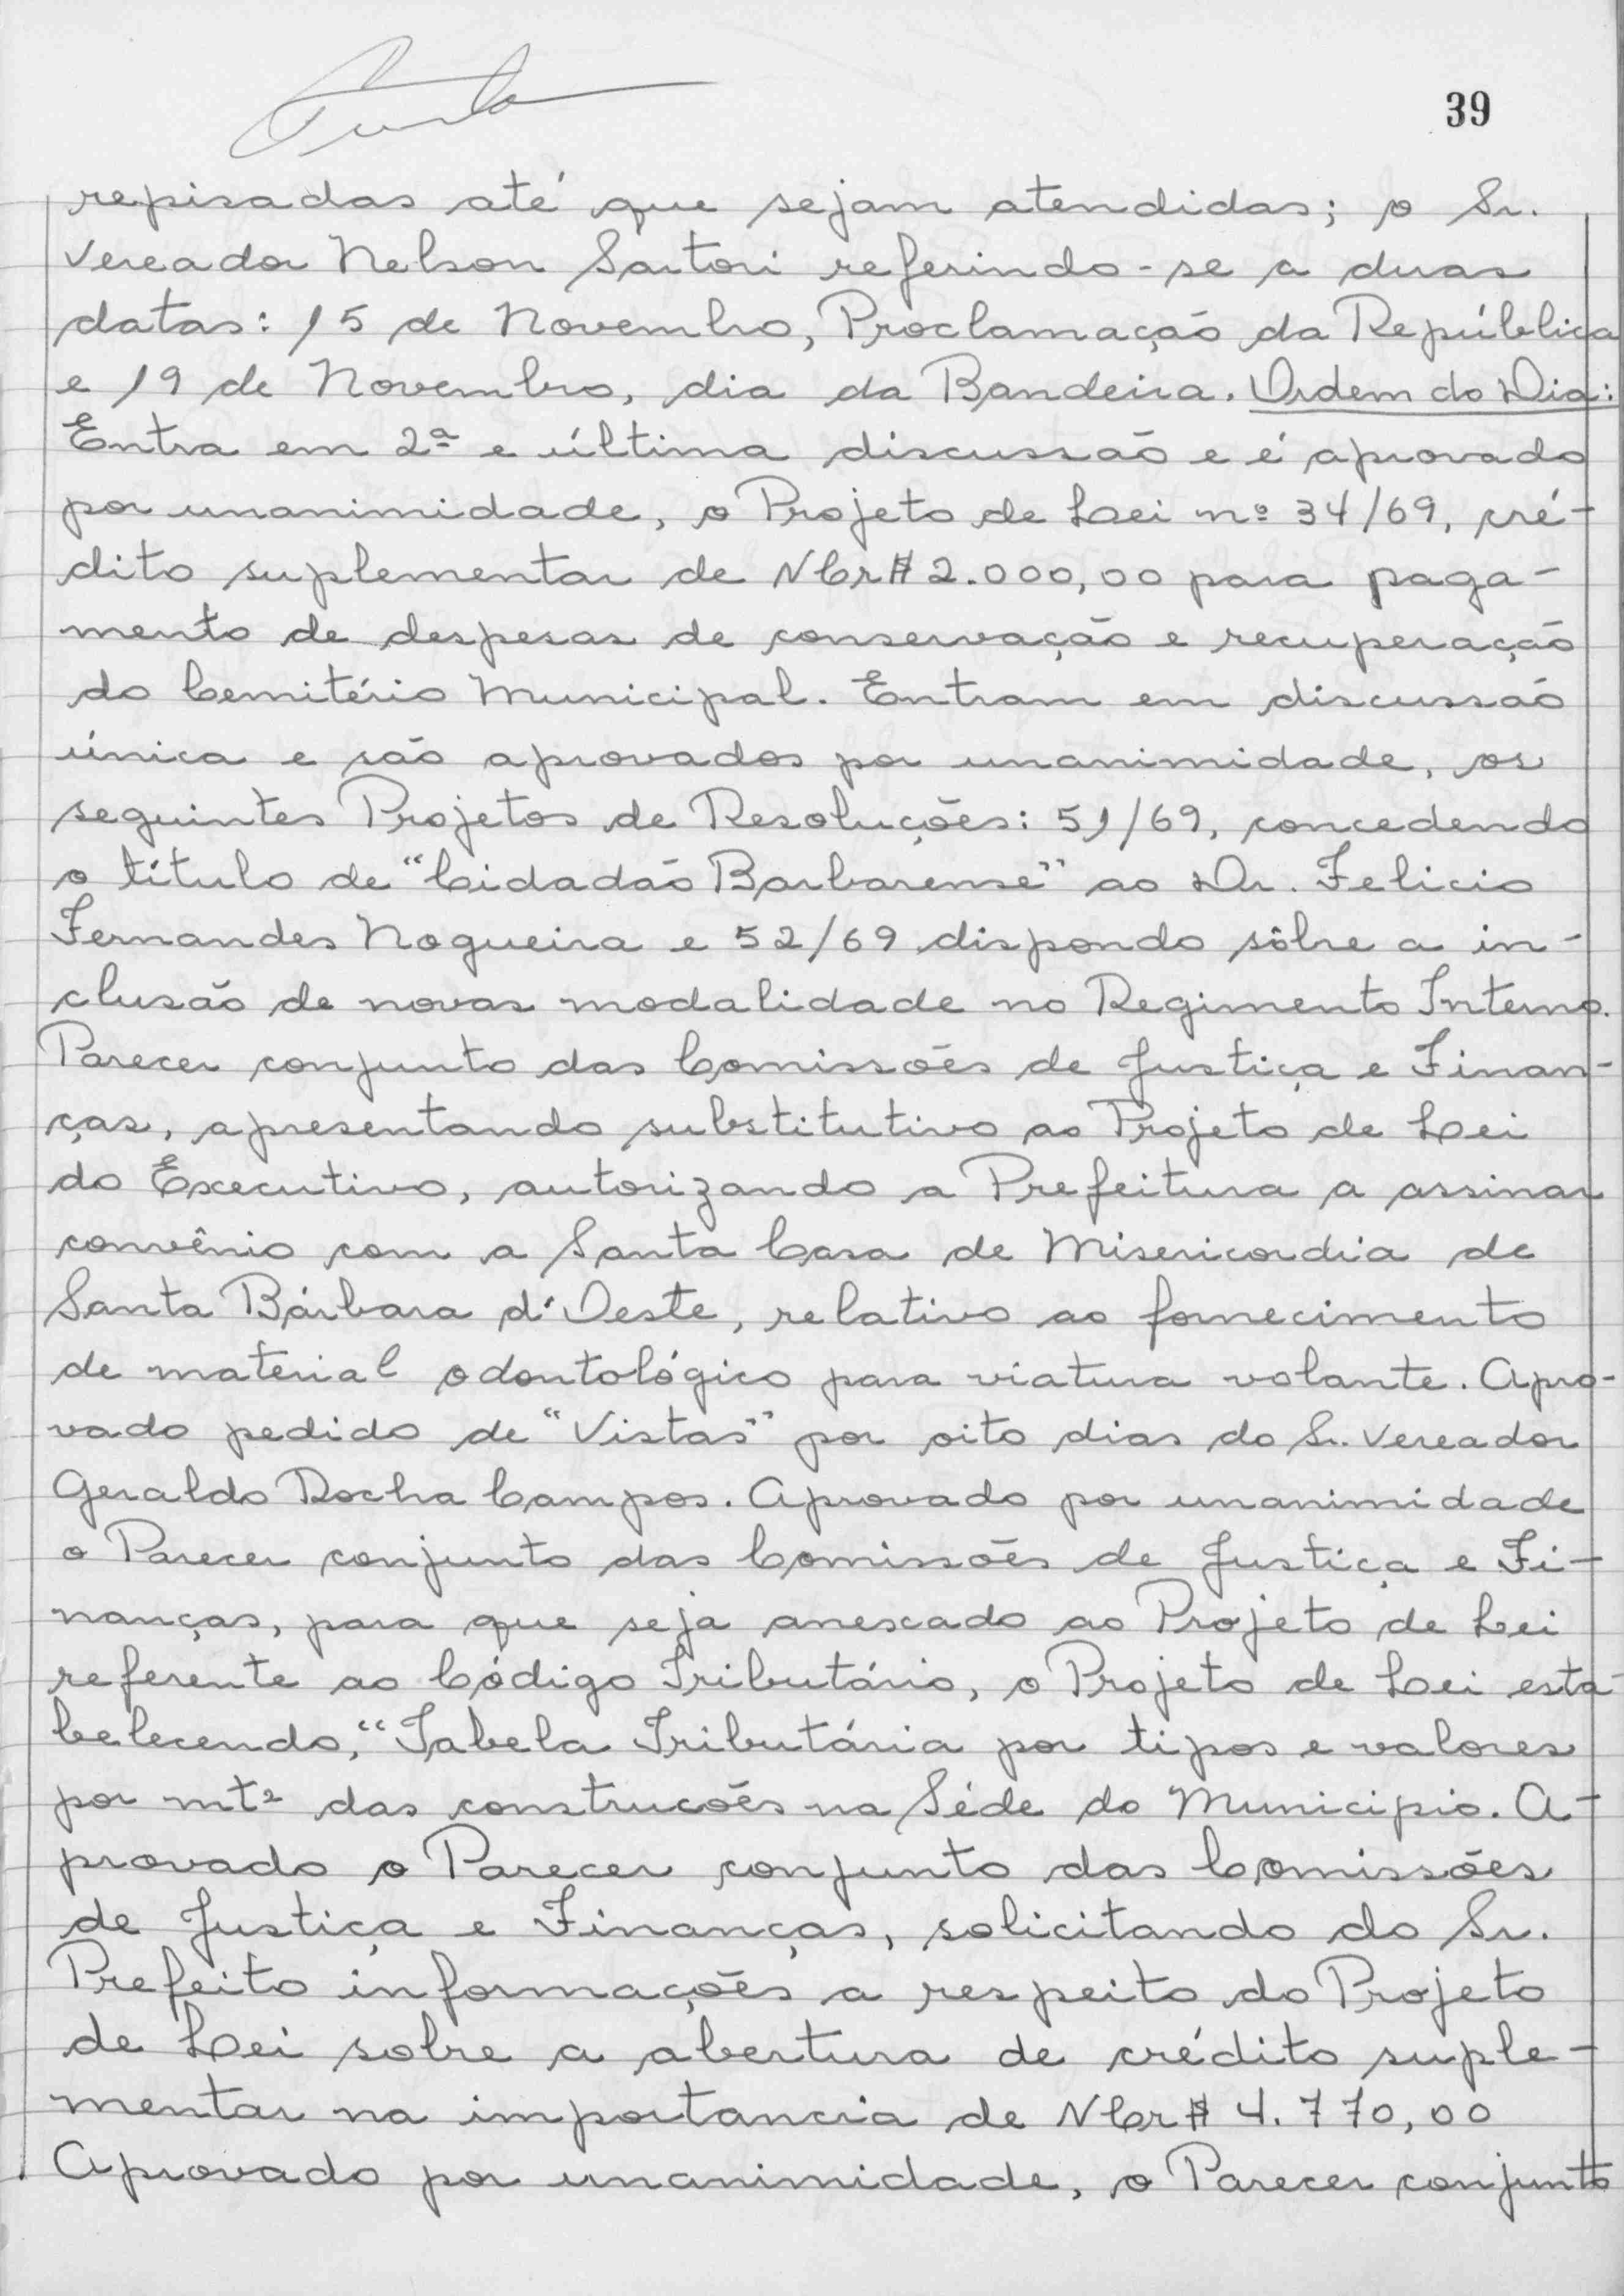 39
repisadas até que sejam atendidas; o Sr.
Vereador Nelson Sartori referindo-se a duas
datas: 15 de Novembro, Proclamação da República
e 19 de Novembro, dia da Bandeira. Ordem do Dia:
Entra em 2ª e última discussão e é aprovado
por unanimidade, o Projeto de Lei nº 34/69, cré-
dito suplementar de NCr$ 2.000,00 para paga-
mento de despesas de conservação e recuperação
do Cemitério Municipal. Entram em discussão
única e são aprovados por unanimidade, os
seguintes Projetos de Resoluções: 51/69, concedendo
o título de "Cidadão Barbarense" ao Dr. Felicio
Fernandes Nogueira e 52/69 dispondo sôbre a in-
clusão de novas modalidade no Regimento Interno.
Parecer conjunto das Comissões de Justiça e Finan-
ças, apresentando substitutivo ao Projeto de Lei
do Executivo, autorizando a Prefeitura a assinar
convênio com a Santa Casa de Misericordia de
Santa Bárbara d'Oeste, relativo ao fornecimento
de material odontológico para viatura volante. Apro-
vado pedido de "Vistas" por oito dias do Sr. Vereador
Geraldo Rocha Campos. Aprovado por unanimidade
o Parecer conjunto das Comissões de Justiça e Fi-
nanças, para que seja anexado ao Projeto de Lei
referente ao Código Tributário, o Projeto de Lei esta-
belecendo, "Tabela Tributária por tipos e valores
por mt² das construcões na Séde do Municipio. A-
provado o Parecer conjunto das Comissões
de Justiça e Finanças, solicitando do Sr.
Prefeito informações a respeito do Projeto
de Lei sobre a abertura de crédito suple-
mentar na importancia de NCr$ 4.770,00
Aprovado por unanimidade, o Parecer conjunto